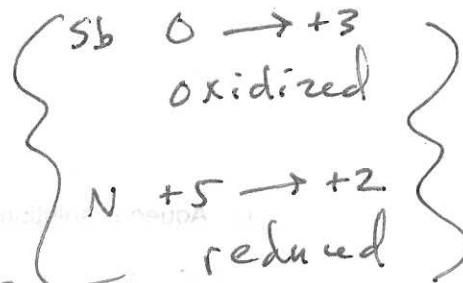 Sb 0 → +3
oxidized
N +5 → +2
reduced